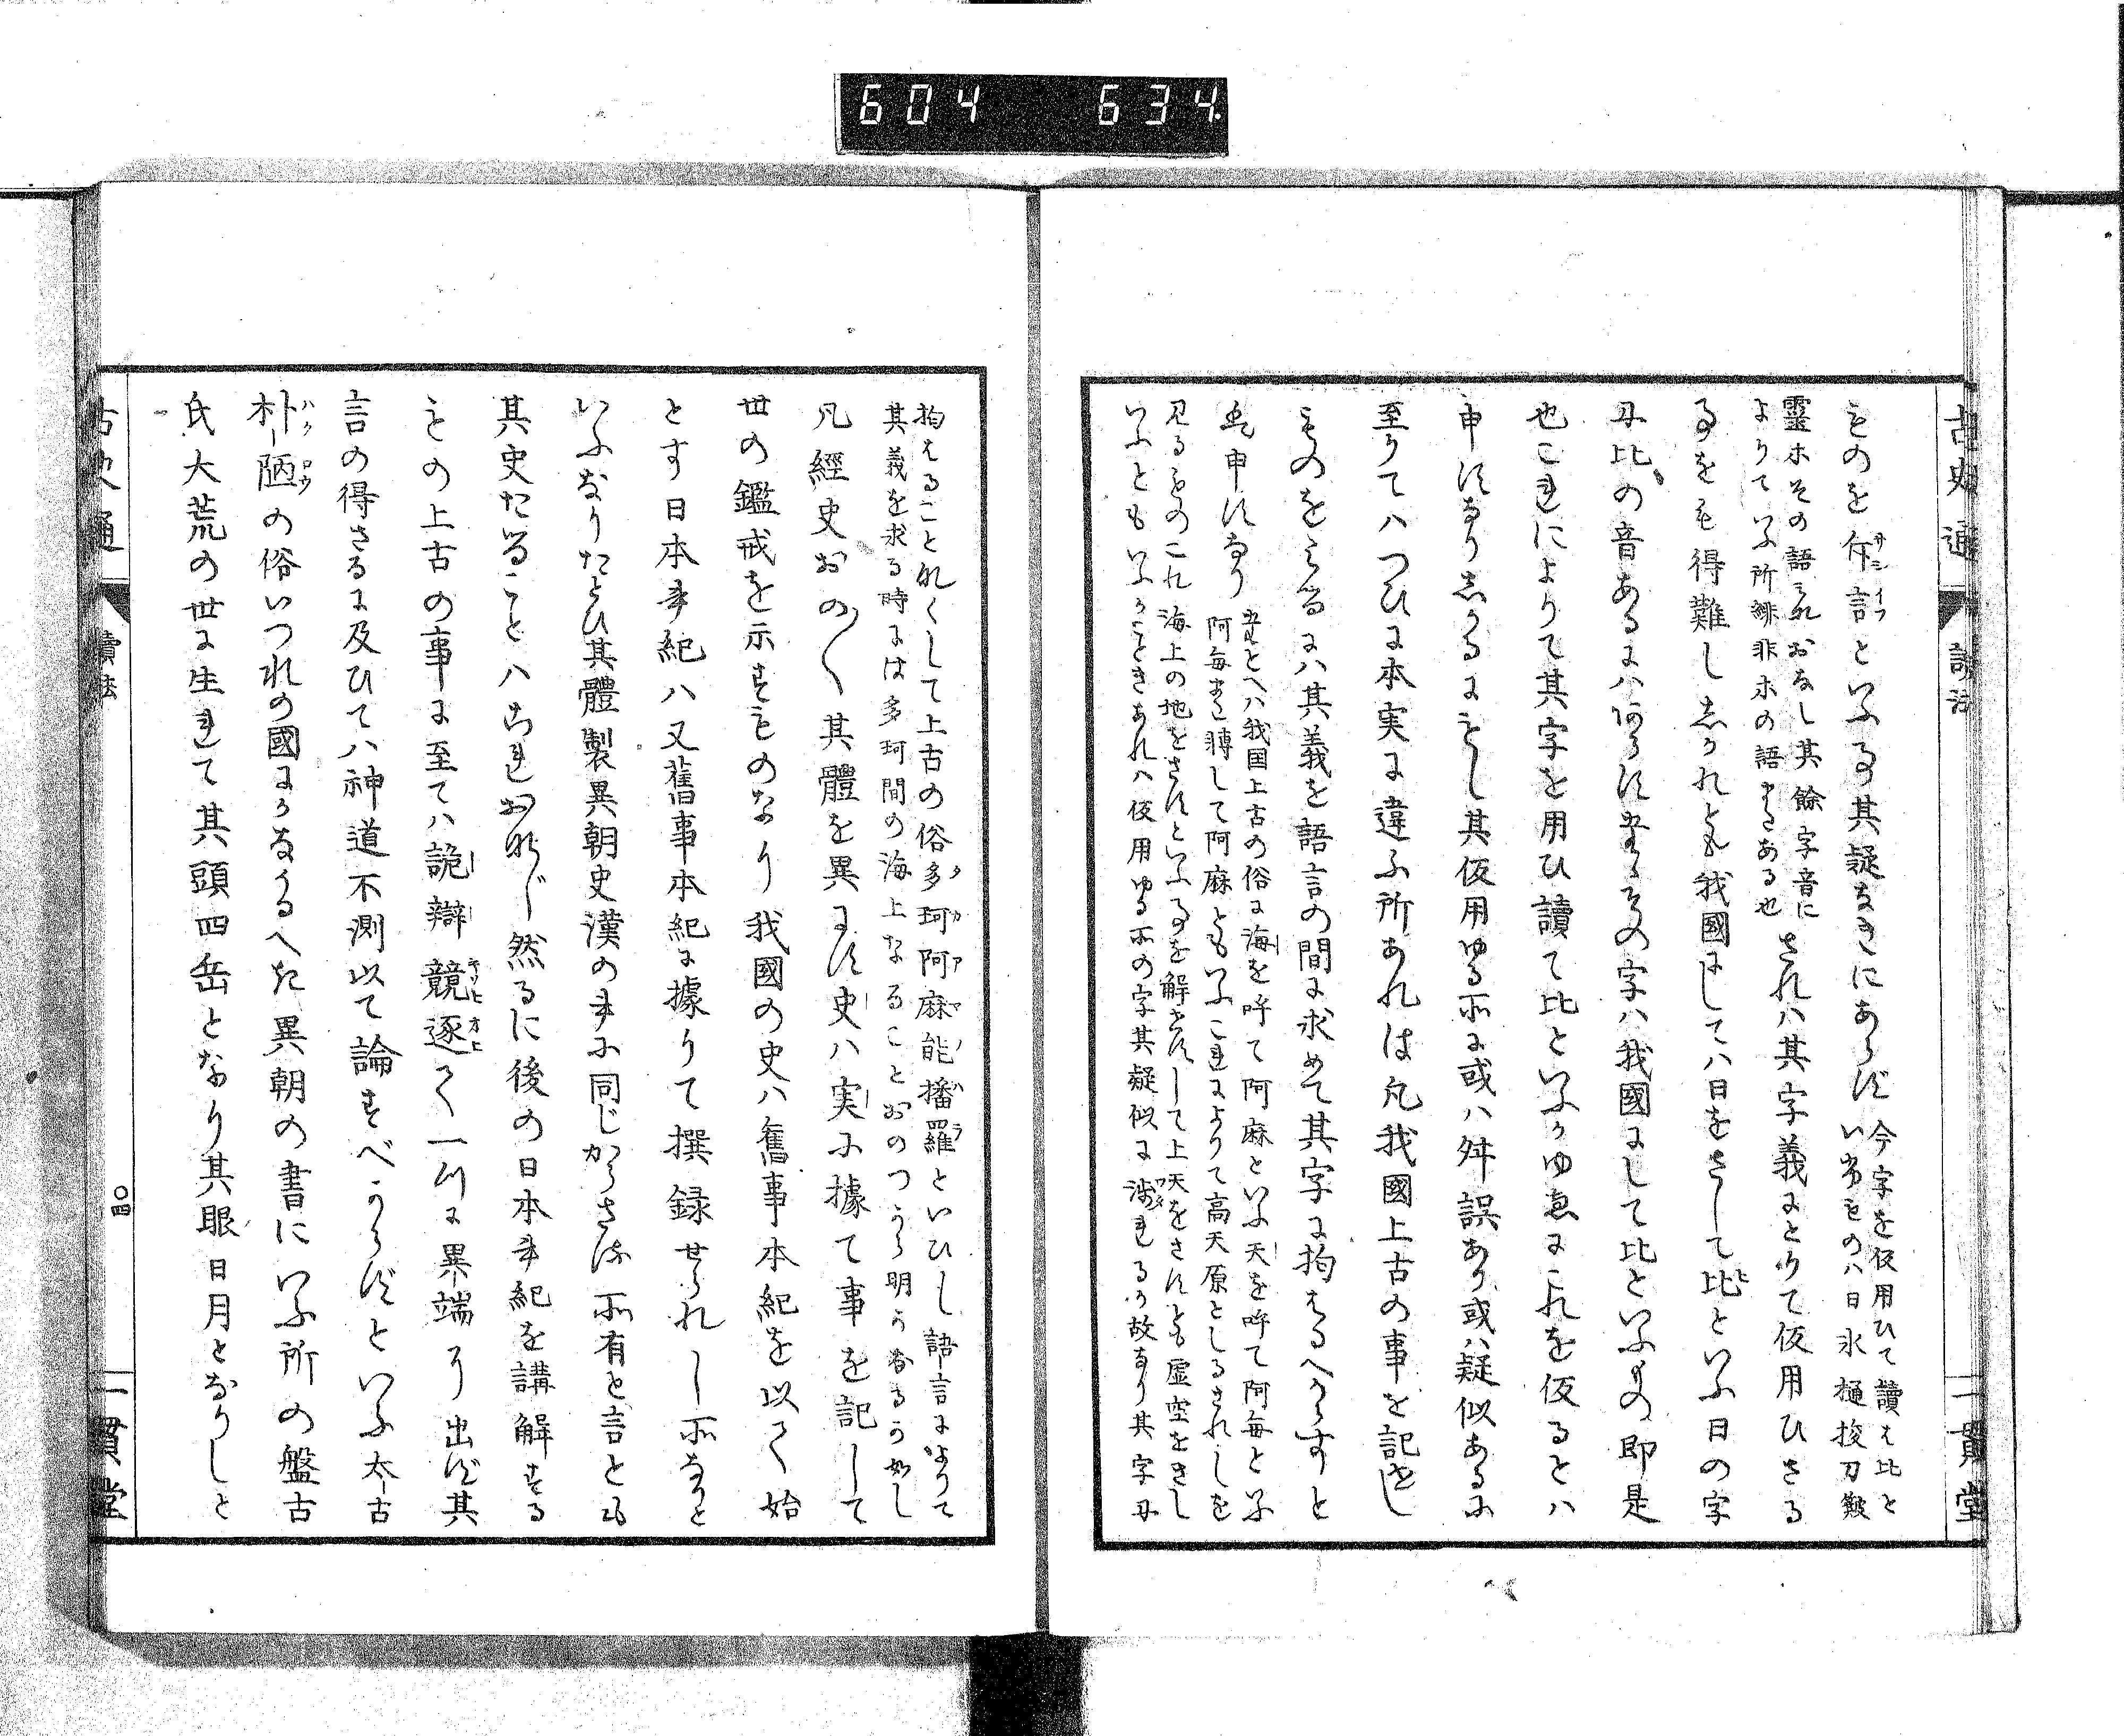 604 634
古史通
讀法
一貫堂
ものを斥言といふ事其疑なきにあらす
今字を仮用ひて讀は比と
いふものハ日氷樋捘刀皸
靈ホその語これおなし其餘字音に
よりていふ所緋非ホの語またある也
されハ其字義によりて仮用ひさる
事をも得難ししかれとも我國にしてハ日をさして比といふ日の字
に比の音あるにハあらす比の字ハ我國にして比といふもの即是
也これによりて其字を用ひ讀て比といふかゆゑにこれを仮るとハ
申すなりしかるにもし其仮用ゆる所に或ハ舛誤あり或ハ疑似あるに
至りてハつひに本実に違ふ所あれは凡我國上古の事を記せし
ものをみるにハ其義を語言の間に求めて其字に拘はるへからすと
ハ申すなり
たとへハ我国上古の俗に海を呼て阿麻といふ天を呼て阿毎といふ
阿毎また轉して阿麻ともいふこれによりて高天原としるされしを
見るものこれ海上の地をさすといふ事を解さすして上天をさすとも虚空をさし
いふともいふこときあれハ仮用ゆる所の字其疑似に渉れるか故なり其字に
拘はることなくして上古の俗多珂阿麻能播羅といひし語言によりて
其義を求る時には多珂間の海上なることおのつから明かなるか如し
凡經史おの〱其體を異にす史ハ実に據て事を記して
世の鑑戒を示すものなり我國の史ハ舊事本紀を以て始
とす日本年紀ハ又舊事本紀に據りて撰録せられし所なりと
いふなりたとひ其體製異朝史漢の書に同じからさる所有と言とも
其史たることハこれおなじ然るに後の日本書紀を講解する
もの上古の事に至てハ詭辯競逐て一つに異端より出す其
言の得さるに及ひてハ神道不測以て論すべからずといふ太古
朴陋の俗いつれの國にかなかるへき異朝の書にいふ所の盤古
氏大荒の世に生れて其頭四岳となり其眼日月となりしと
古史通
讀法
〇四
一貫堂